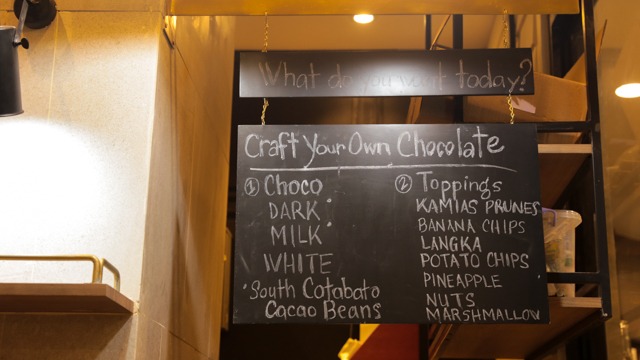 What do you want today?
Craft Your Own Chocolate
① Choco
DARK
MILK
WHITE
South Cotabato
Cacao Beans
② Toppings
KAMIAS PRUNES
BANANA CHIPS
LANGKA
POTATO CHIPS
PINEAPPLE
NUTS
MARSHMALLOW